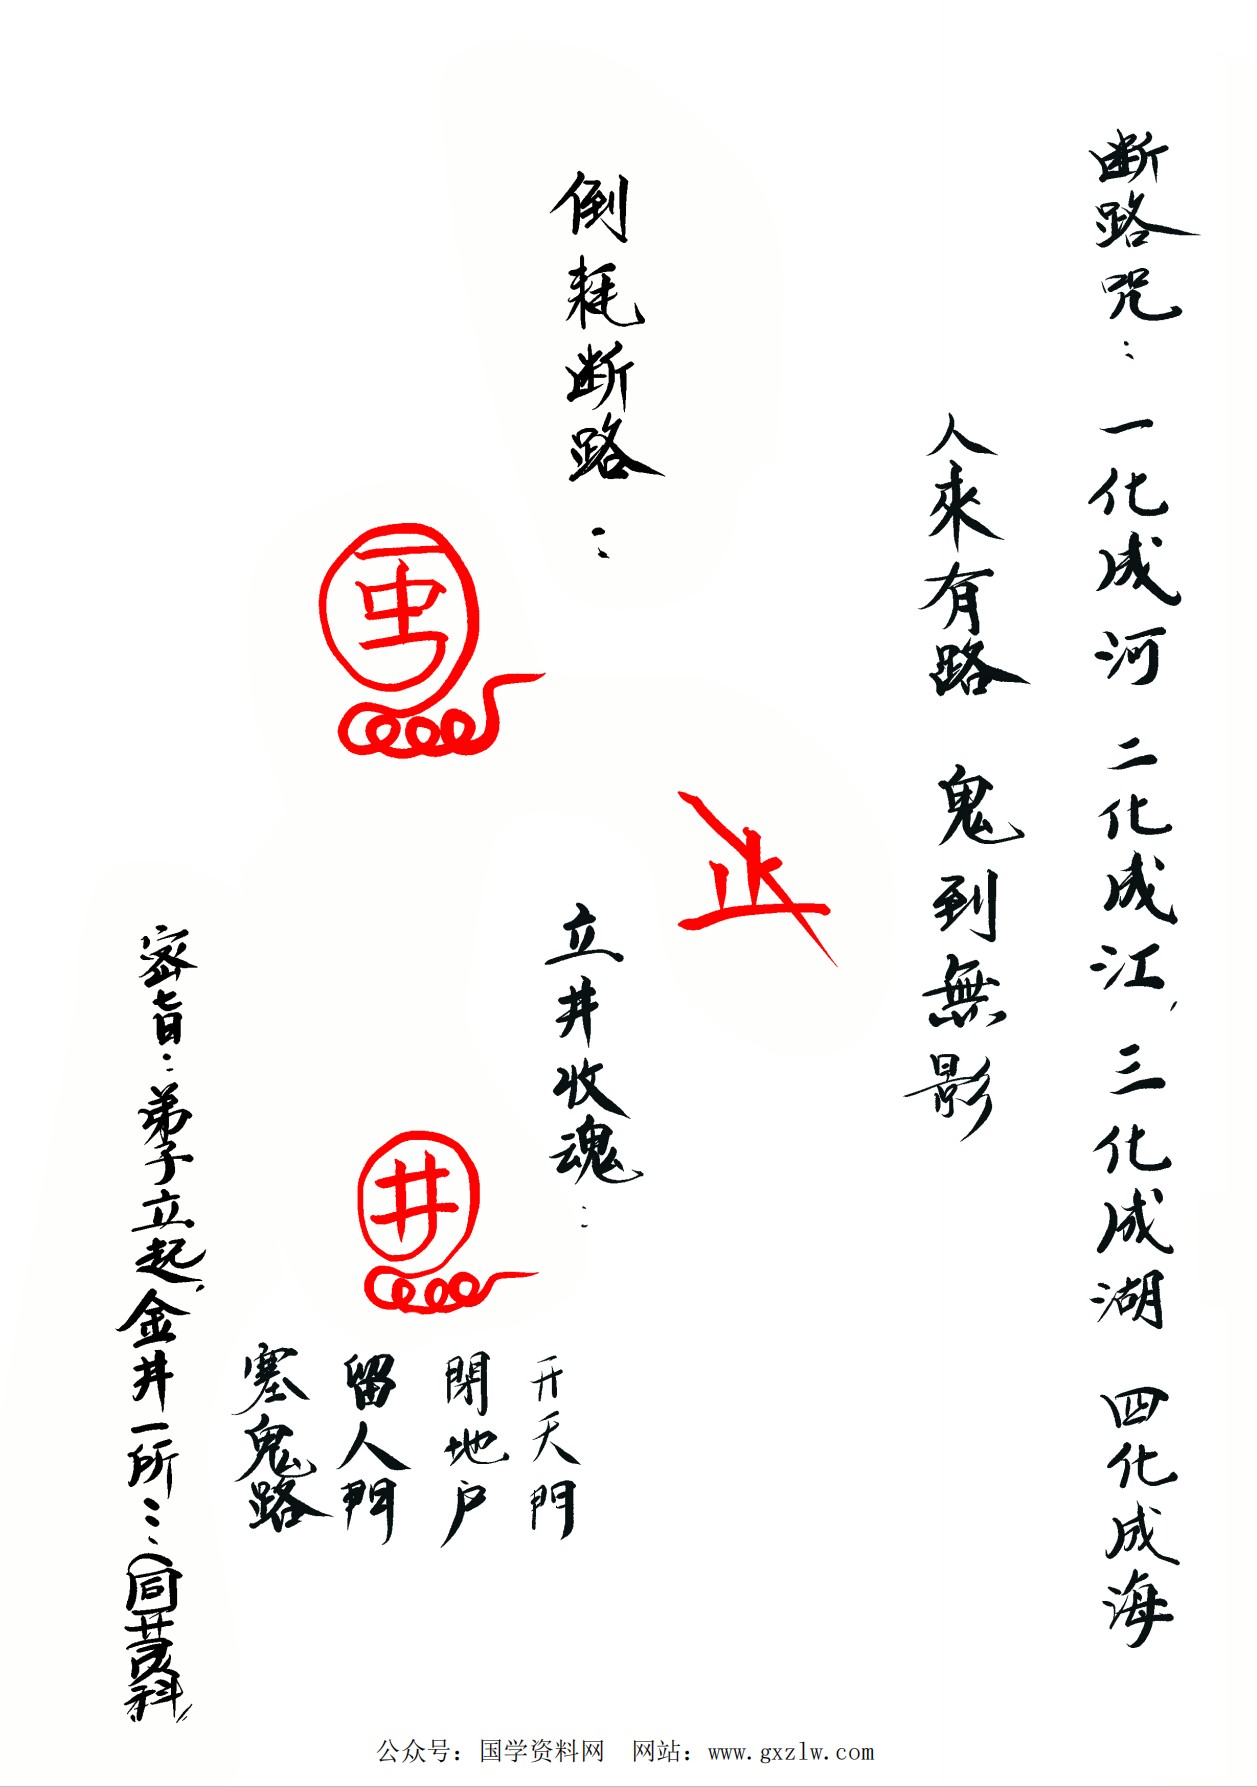 断路咒：一化成河 二化成江，三化成湖 四化成海
人來有路 鬼到無影
倒耗断路：
立井收魂：
井
开天門
閉地户
留人門
塞鬼路
密旨：弟子立起，金井一所…（同茂科）
公众号：国学资料网 网站：www.gxzlw.com